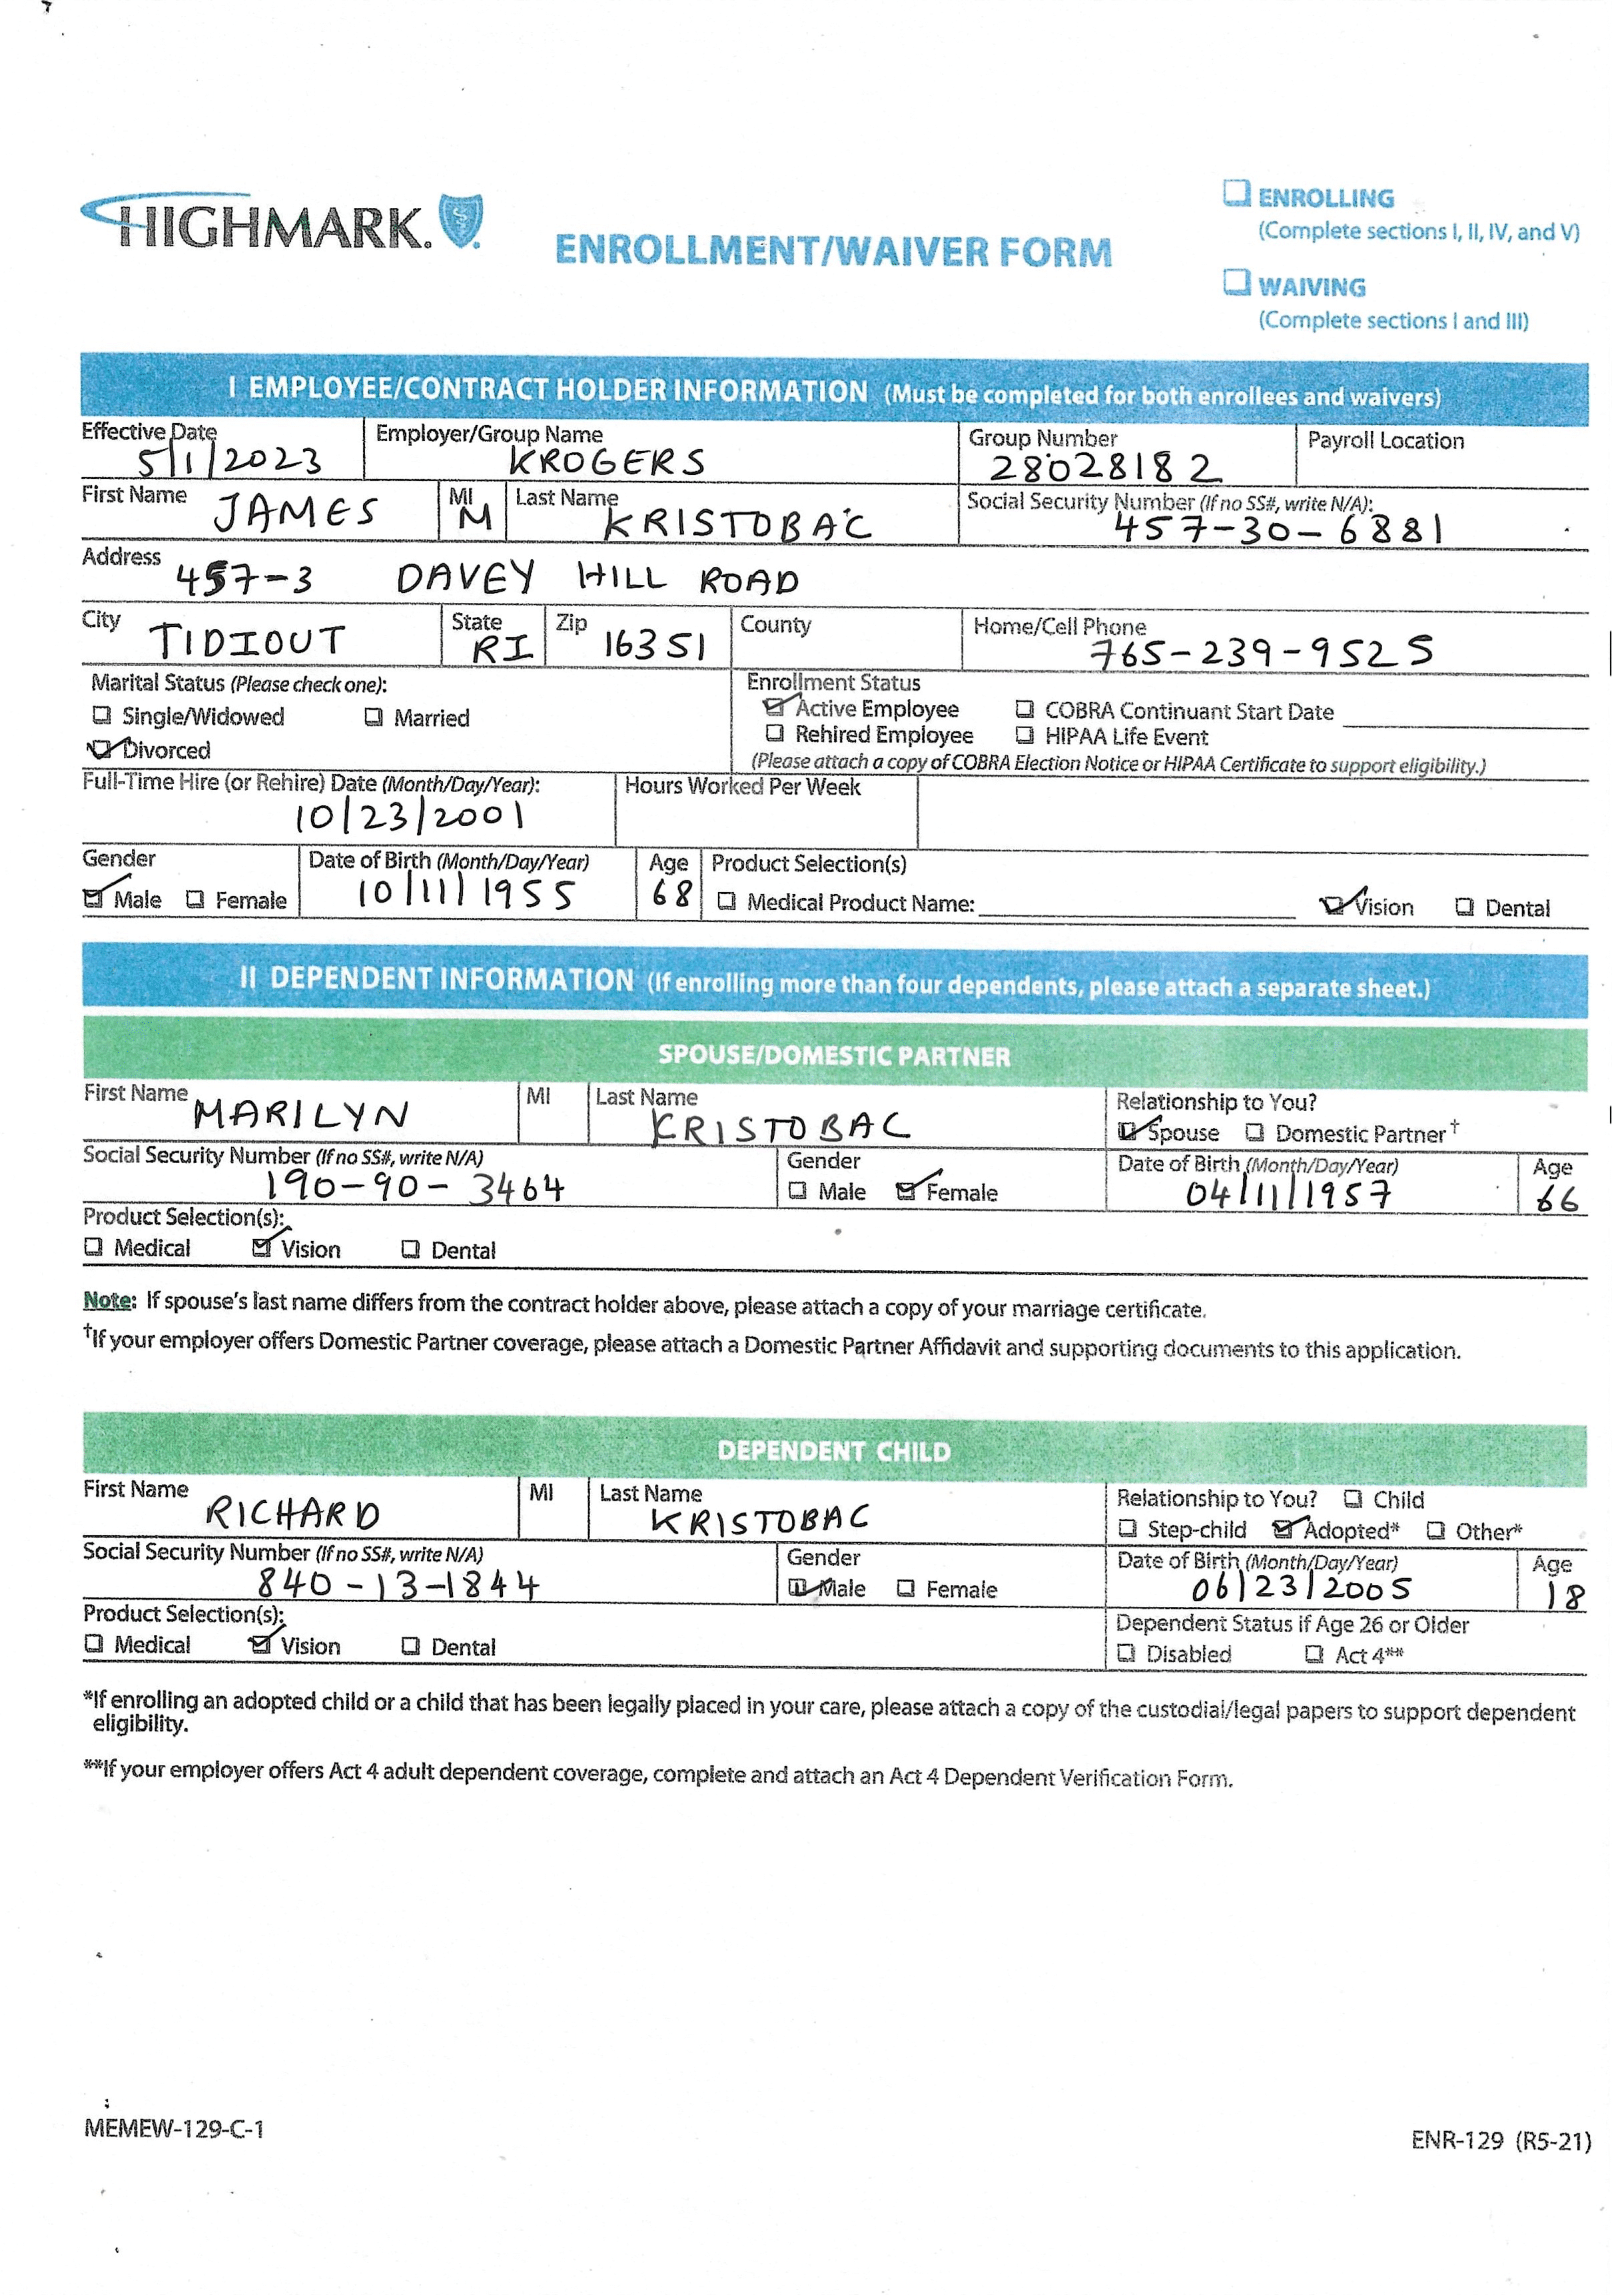 HIGHMARK.
ENROLLMENT/WAIVER FORM
ENROLLING
(Complete sections I, II, IV, and V)
WAIVING
(Complete sections I and III)
I EMPLOYEE/CONTRACT HOLDER INFORMATION (Must be completed for both enrollees and waivers)
Effective Date Employer/Group Name Group Number Payroll Location
5/1/2023 KROGERS 28028182
First Name JAMES MI M Last Name KRISTOBAC Social Security Number (If no SS#, write N/A):
457-30-6881
Address
457-3 DAVEY HILL ROAD
City TIDIOUT State RI Zip 16351 County Home/Cell Phone
765-239-9525
Marital Status (Please check one): Enrollment Status
Single/Widowed Married Active Employee COBRA Continuant Start Date
Divorced Rehired Employee HIPAA Life Event
(Please attach a copy of COBRA Election Notice or HIPAA Certificate to support eligibility.)
Full-Time Hire (or Rehire) Date (Month/Day/Year): Hours Worked Per Week
10/23/2001
Gender Date of Birth (Month/Day/Year) Age Product Selection(s)
Male Female 10/11/1955 68 Medical Product Name: Vision Dental
II DEPENDENT INFORMATION (If enrolling more than four dependents, please attach a separate sheet.)
SPOUSE/DOMESTIC PARTNER
First Name MARILYN MI Last Name KRISTOBAC Relationship to You?
Spouse Domestic Partner†
Social Security Number (If no SS#, write N/A) Gender Date of Birth (Month/Day/Year) Age
190-90-3464 Male Female 04/11/1957 66
Product Selection(s):
Medical Vision Dental
Note: If spouse's last name differs from the contract holder above, please attach a copy of your marriage certificate.
†If your employer offers Domestic Partner coverage, please attach a Domestic Partner Affidavit and supporting documents to this application.
DEPENDENT CHILD
First Name RICHARD MI Last Name KRISTOBAC Relationship to You? Child
Step-child Adopted* Other*
Social Security Number (If no SS#, write N/A) Gender Date of Birth (Month/Day/Year) Age
840-13-1844 Male Female 06/23/2005 18
Product Selection(s): Dependent Status if Age 26 or Older
Medical Vision Dental Disabled Act 4**
*If enrolling an adopted child or a child that has been legally placed in your care, please attach a copy of the custodial/legal papers to support dependent
eligibility.
**If your employer offers Act 4 adult dependent coverage, complete and attach an Act 4 Dependent Verification Form.
MEMEW-129-C-1
ENR-129 (R5-21)